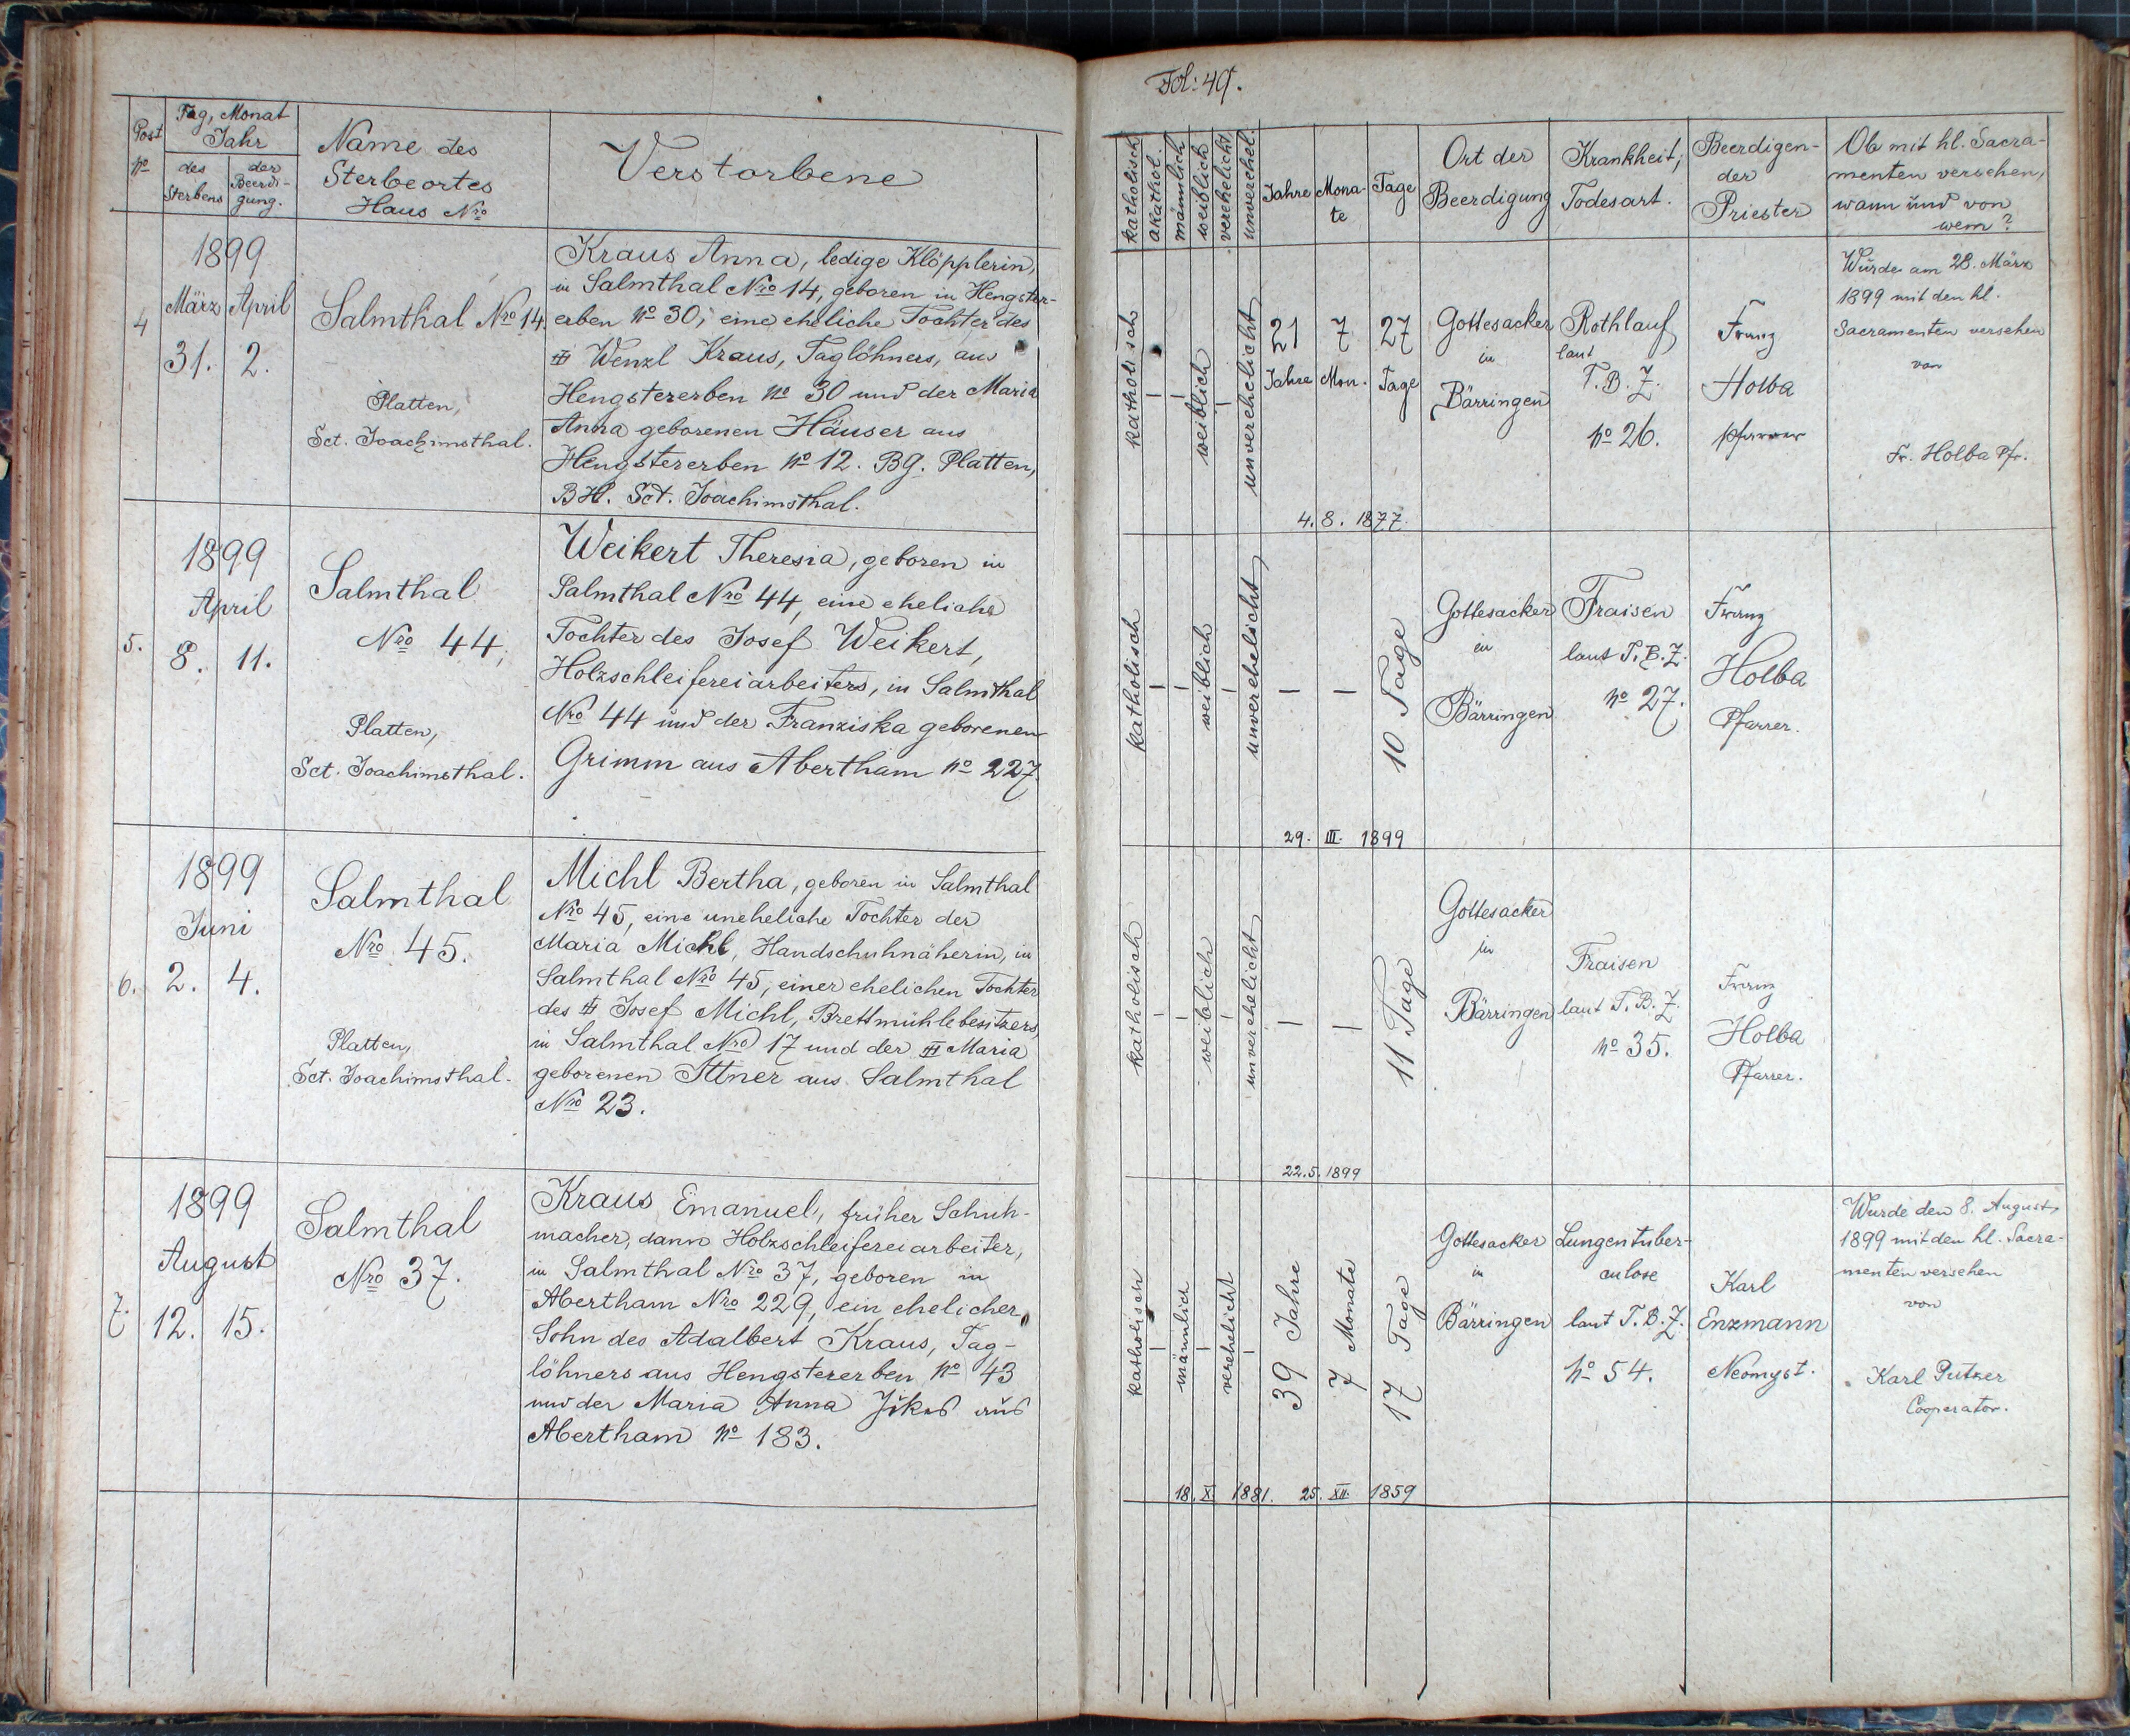 Fol: 49.
Post No
Tag, Monat
Jahr
des
Sterbens
der
Beerdi-
gung.
Name des
Sterbeortes
Haus Nro
Verstorbene
katholisch
akathol.
männlich
weiblich
verehelicht
unverehel.
Jahre
Mona-
te
Tage
Ort der
Beerdigung
Krankheit,
Todesart.
Beerdigen-
der
Priester
Ob mit hl. Sacra-
menten versehen,
wann und von
wem?
4
1899
März April
31. 2.
Salmthal Nro 14
Platten,
Sct. Joachimsthal.
Kraus Anna, ledige Klöpplerin,
in Salmthal Nro 14, geboren in Hengster-
erben No 30, eine eheliche Tochter des
Wenzl Kraus, Taglöhners, aus
Hengstererben No 30 und der Maria
Anna geborenen Häuser aus
Hengstererben No 12. BG. Platten,
BH. Sct. Joachimsthal.
katholisch
–
–
weiblich
–
unverehelicht
21
Jahre
7
Mon.
27
Tage
4. 8. 1877.
Gottesacker
in
Bärringen
Rothlauf
laut
T. B. Z.
No 26.
Franz
Holba
Pfarrer
Wurde am 28. März
1899 mit den hl.
Sacramenten versehen
von
Fr. Holba Pfr.
5.
1899
April
8. 11.
Salmthal
Nro 44,
Platten,
Sct. Joachimsthal.
Weikert Theresia, geboren in
Salmthal Nro 44, eine eheliche
Tochter des Josef Weikert,
Holzschleifereiarbeiters, in Salmthal
Nro 44 und der Franziska geborenen
Grimm aus Abertham No 227.
katholisch
–
–
weiblich
–
unverehelicht
–
–
10 Tage
29. III. 1899
Gottesacker
in
Bärringen
Fraisen
laut T. B. Z.
No 27.
Franz
Holba
Pfarrer.
6.
1899
Juni
2. 4.
Salmthal
Nro 45.
Platten,
Sct. Joachimsthal.
Michl Bertha, geboren in Salmthal
Nro 45, eine uneheliche Tochter der
Maria Michl, Handschuhnäherin, in
Salmthal Nro 45, einer ehelichen Tochter
des Josef Michl, Brettmühlebesitzers,
in Salmthal Nro 17 und der Maria
geborenen Ittner aus Salmthal
Nro 23.
katholisch
–
–
weiblich
–
unverehelicht
–
–
11 Tage
22. 5. 1899
Gottesacker
in
Bärringen
Fraisen
laut T. B. Z.
No 35.
Franz
Holba
Pfarrer.
7.
1899
August
12. 15.
Salmthal
Nro 37.
Kraus Emanuel, früher Schuh-
macher, dann Holzschleifereiarbeiter,
in Salmthal Nro 37, geboren in
Abertham Nro 229, ein ehelicher
Sohn des Adalbert Kraus, Tag-
löhners aus Hengstererben No 43
und der Maria Anna aus
Abertham No 183.
katholisch
–
männlich
–
verehelicht
–
39 Jahre
7 Monate
17 Tage
18. X. 1881. 25. XII. 1859
Gottesacker
in
Bärringen
Lungentuber-
culose
laut T. B. Z.
No 54.
Karl
Enzmann
Neomyst.
Wurde den 8. August
1899 mit den hl. Sacra-
menten versehen
von
Karl Putzer
Cooperator.